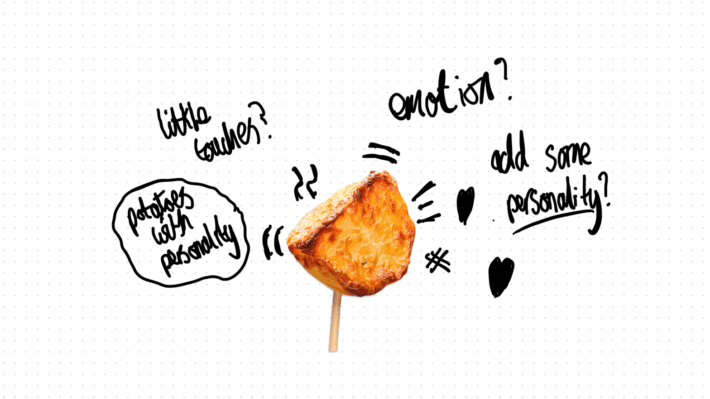 little
touches?
emotion?
add some
personality?
potatoes
with
personality